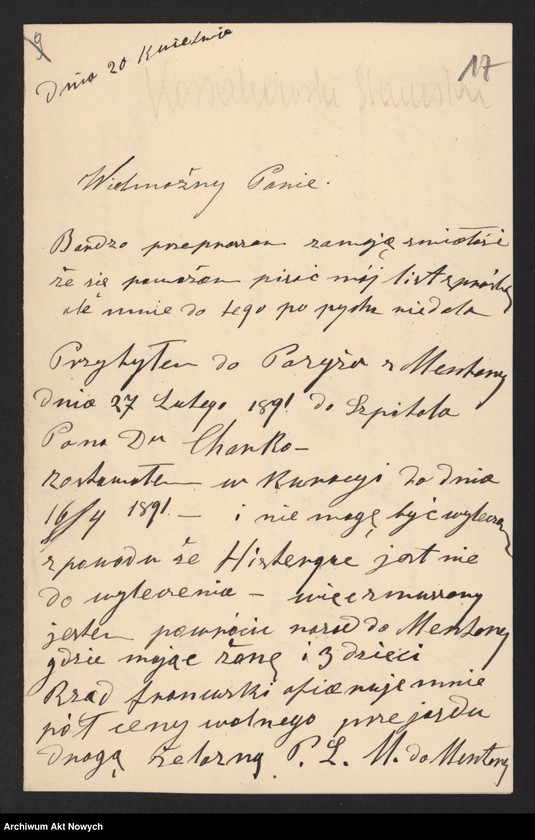 9
17
Dnia 20 Kwietnia
Kossakowski Stanisław
Wielmożny Panie.
Bardzo przepraszam za moją śmiałość
że się poważam pisać mój list z prośbą
ale mnie do tego po pycha niedola
Przybyłem do Paryża z Mentony
dnia 27 Lutego 1891 do Szpitala
Pana Dr Charko–
zostawałem w Kuracyi do dnia
16/4 1891. – i nie mogę być wyleczony
z powodu że Histeryque jest nie
do wyleczenia – więc zmuszony
jestem powrócić nazad do Mentony
gdzie mając żonę i 3 dzieci
Rząd francuski ofiaruje mnie
pół ceny wolnego przejazdu
drogą żelazną P. L. M. do Mentony
Archiwum Akt Nowych